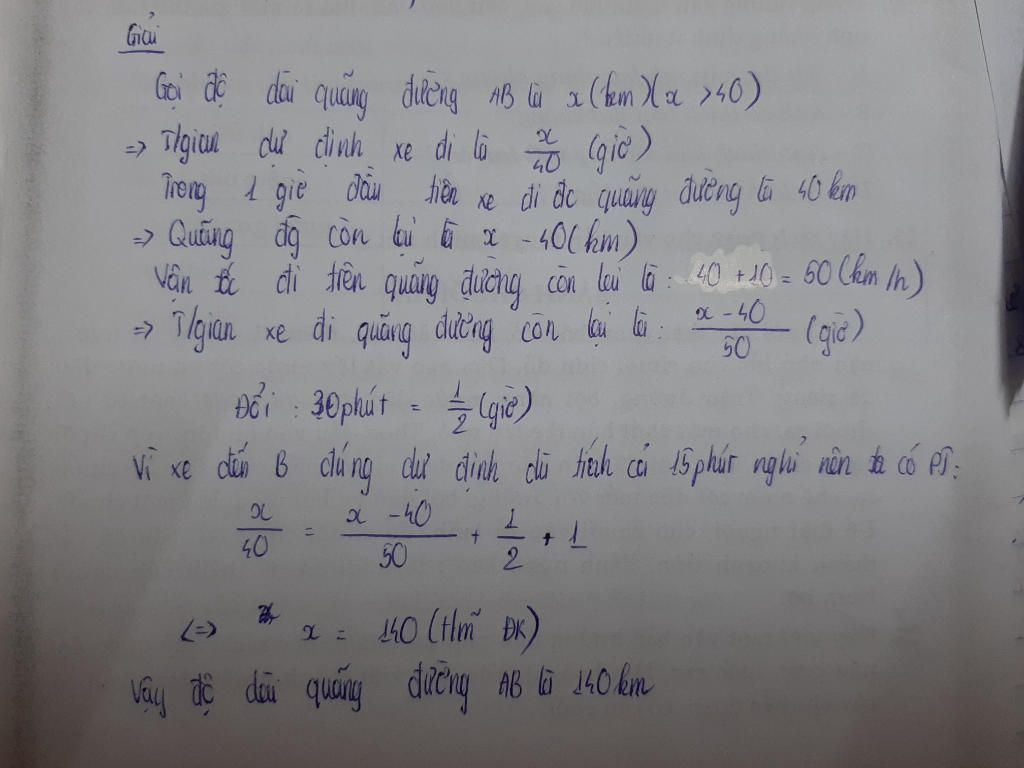 Giải
Gọi độ dài quãng đường AB là x (km) (x > 40)
=> T/gian dự định xe đi là x/40 (giờ)
Trong 1 giờ đầu tiên xe đi đc quãng đường là 40 km
=> Quãng đg còn lại là x - 40 (km)
Vận tốc đi trên quãng đường còn lại là : 40 + 10 = 50 (km/h)
=> T/gian xe đi quãng đường còn lại là : (x - 40)/50 (giờ)
Đổi : 30 phút = 1/2 (giờ)
Vì xe đến B đúng dự định dù tính cả 15 phút nghỉ nên ta có PT:
x/40 = (x - 40)/50 + 1/2 + 1
<=> x = 140 (t/mã ĐK)
Vậy độ dài quãng đường AB là 140 km